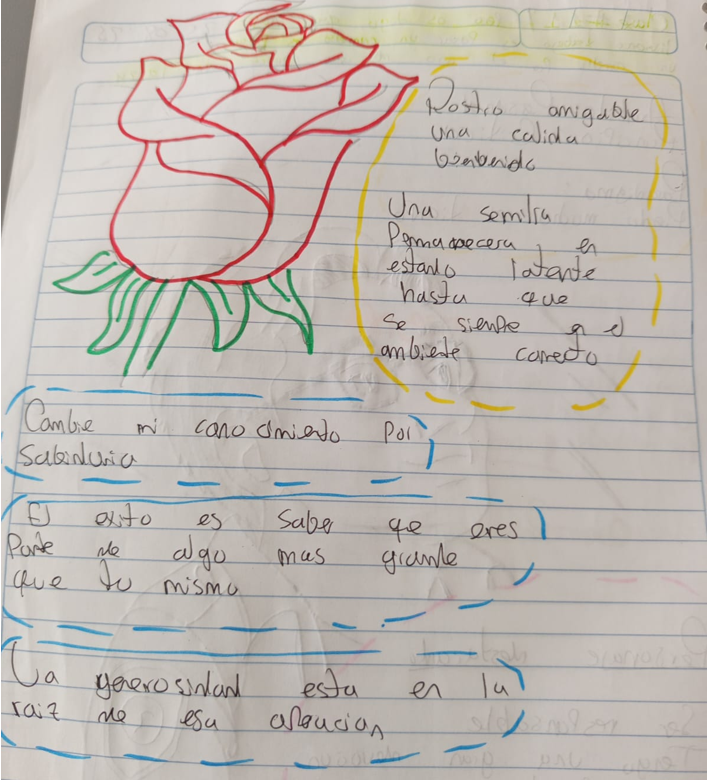 Rostro amigable
una calida
bienbenida
Una semilla
Permanecera en
estado latente
hasta que
se siente en el
ambiete correcto
Cambie mi conocimiento por
Sabiduria
El exito es saber que eres
Parte de algo mas grande
que tu mismo
La generosidad esta en la
raiz de esa